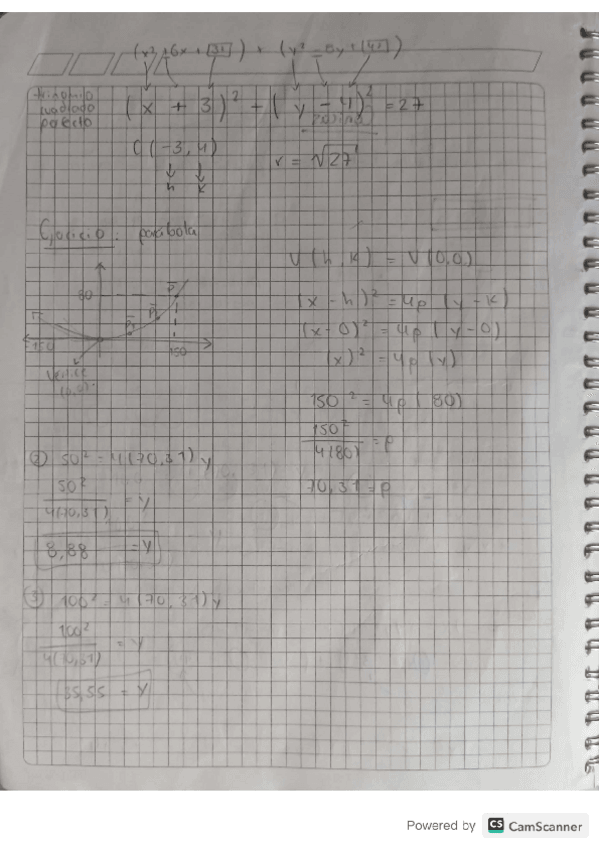 (x² + 6x + 3²) + (y² - 8y + 4²)
trinomio
cuadrado
perfecto
(x + 3)² + (y - 4)² = 27
C(-3, 4)
h k
r = √27
Ejercicio: parábola
80
P
P₂
P₁
-150
150
Vertice
(0,0)
V(h, k) = V(0,0)
(x - h)² = 4p (y - k)
(x - 0)² = 4p (y - 0)
(x)² = 4p (y)
150² = 4p (80)
150²
4(80)
= p
70,31 = p
② 50² = 4(70,31) y
50²
4(70,31)
= y
8,88 = y
③ 100² = 4(70,31) y
100²
4(70,31)
= y
35,55 = y
Powered by CS CamScanner